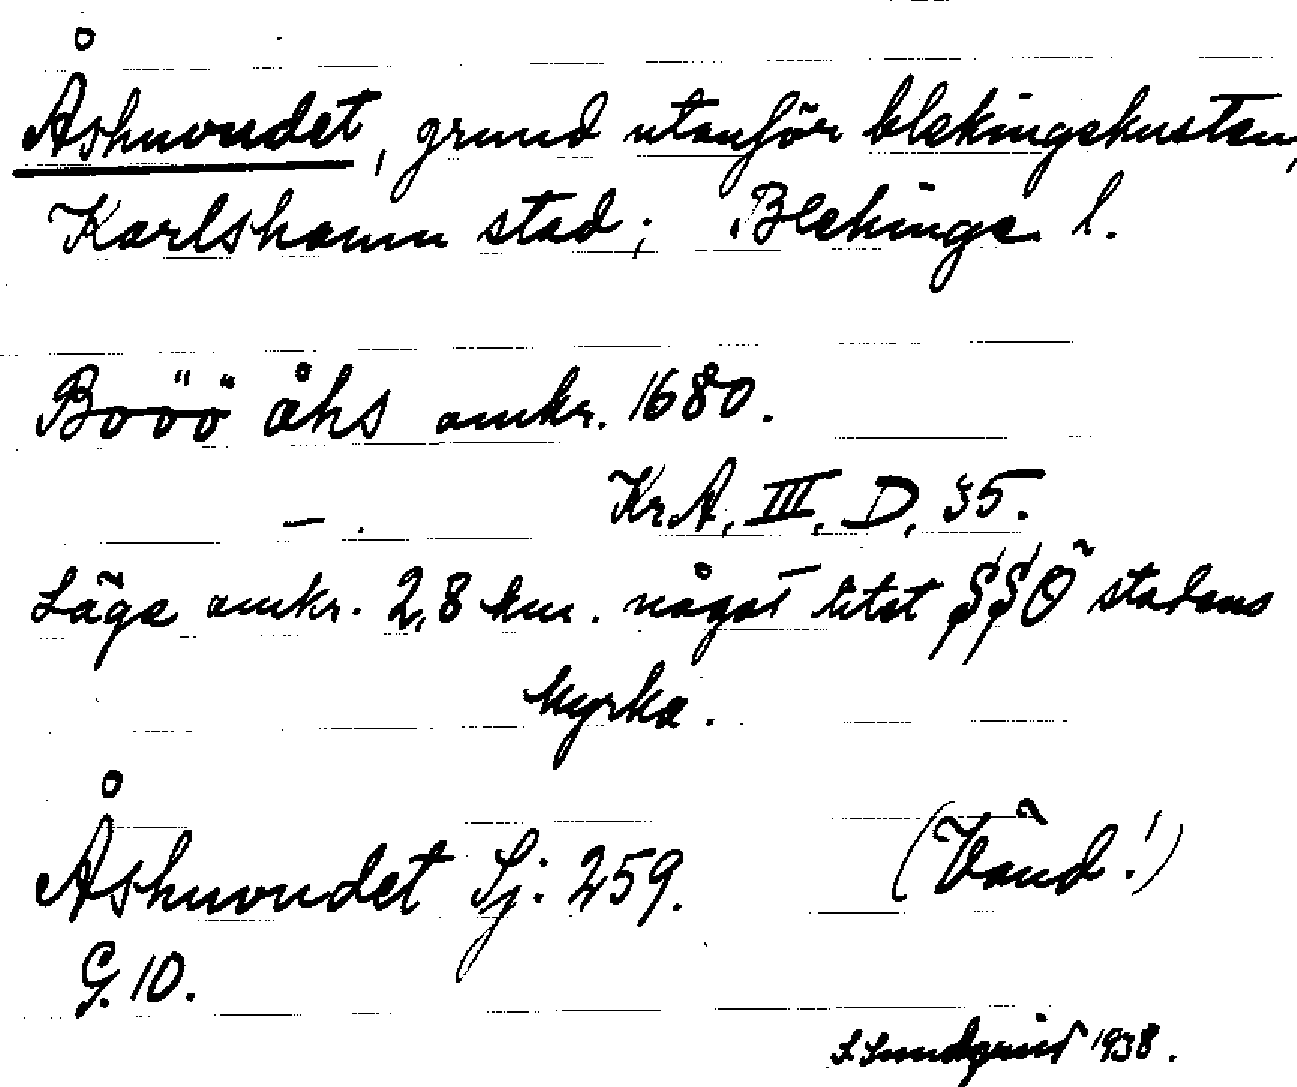 Åshuvudet, grund utanför blekingekusten,
Karlshamn stad; Blekinge l.
Booö åhs omkr. 1680.
Kr.A, III, D, 35.
Läge omkr. 2,8 km. något litet SSÖ stadens
kyrka.
Åshuvudet Sj. 259. (Vänd!)
G. 10.
1938.